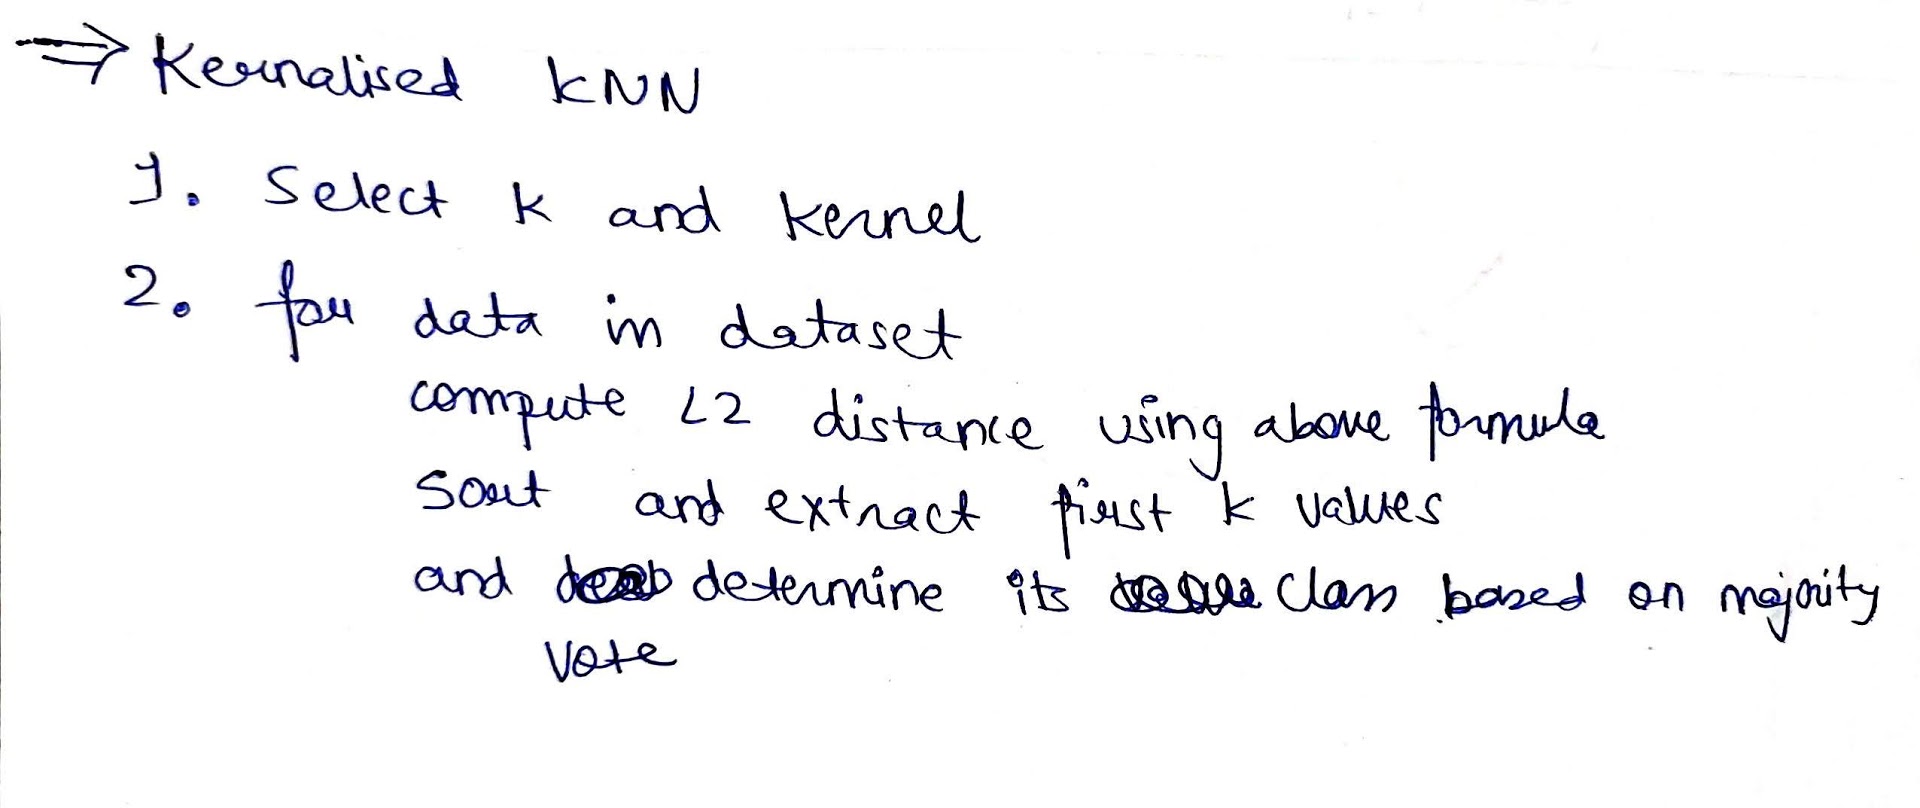 ⇒ Kernalised KNN
1. Select k and kernel
2. for data in dataset
compute L2 distance using above formula
sort and extract first k values
and determine its class based on majority
vote